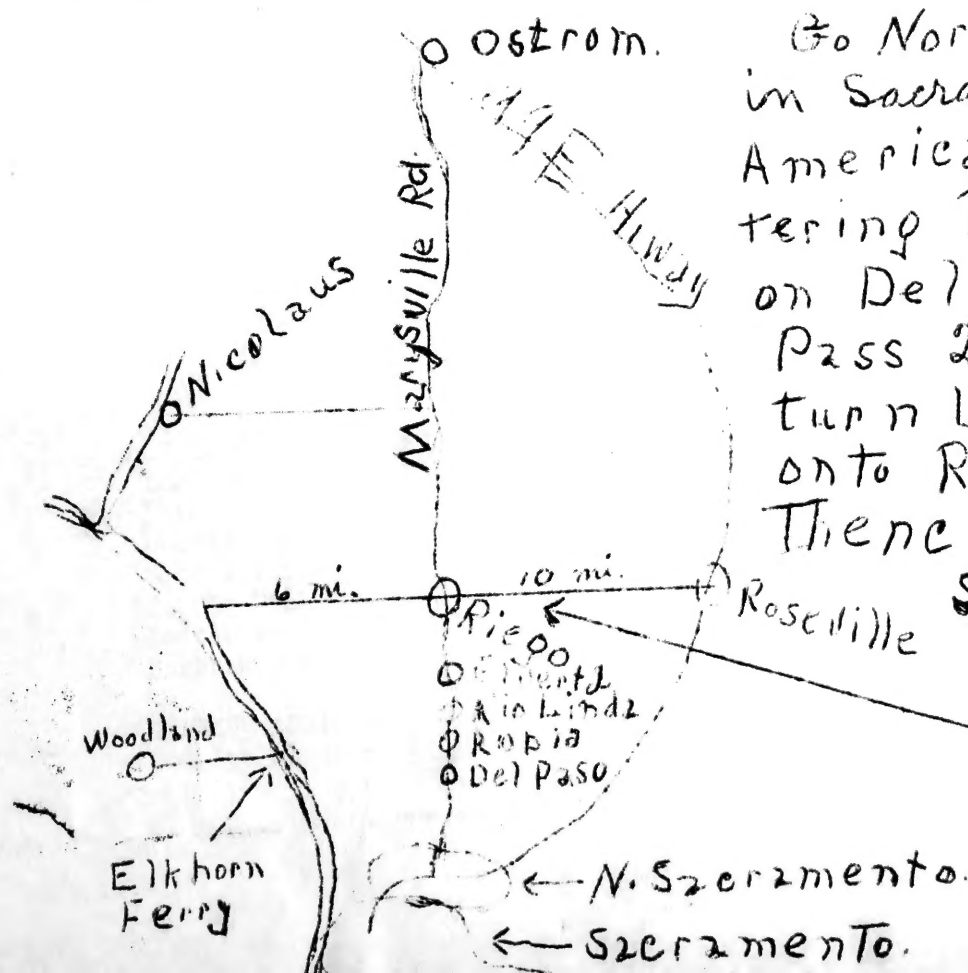 Ostrom.
Go Nor
in Sacra
America
tering
on Del
Pass 2
turn L
onto R
Thenc
S
99E Hiway
Marysville Rd.
Nicolaus
6 mi.
10 mi.
Riego
Roseville
Elverta
Rio Linda
Robla
Del Paso
Woodland
Elkhorn
Ferry
N. Sacramento.
Sacramento.